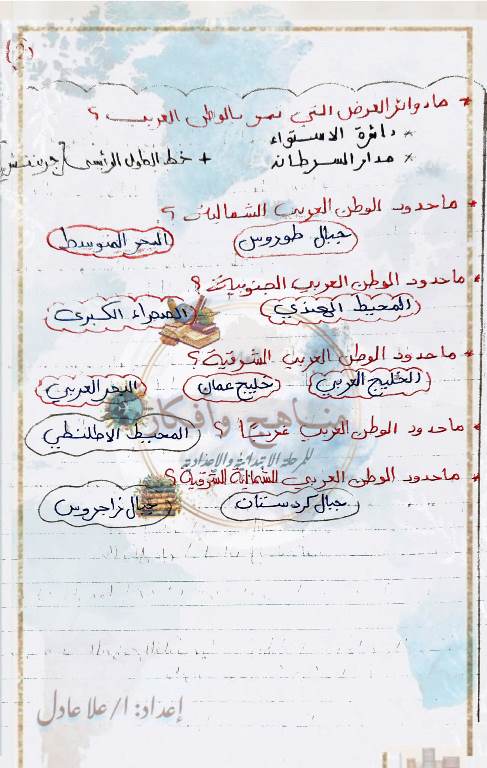 (٢)
* ما دوائر العرض التي تمر بالوطن العربي ؟
* دائرة الاستواء
* مدار السرطان + خط الطول الرئيسى (جرينتش)
* ما حدود الوطن العربي الشمالية ؟
جبال طوروس البحر المتوسط
* ما حدود الوطن العربي الجنوبية ؟
المحيط الهندي الصحراء الكبرى
* ما حدود الوطن العربي الشرقية ؟
الخليج العربي خليج عمان البحر العربي
* ما حدود الوطن العربي غربًا ؟ المحيط الاطلنطي
مناهج وأفكار
للمرحلة الابتدائية والاعدادية
* ما حدود الوطن العربي الشمالية الشرقية ؟
جبال كردستان جبال زاجروس
إعداد: ا/ علا عادل